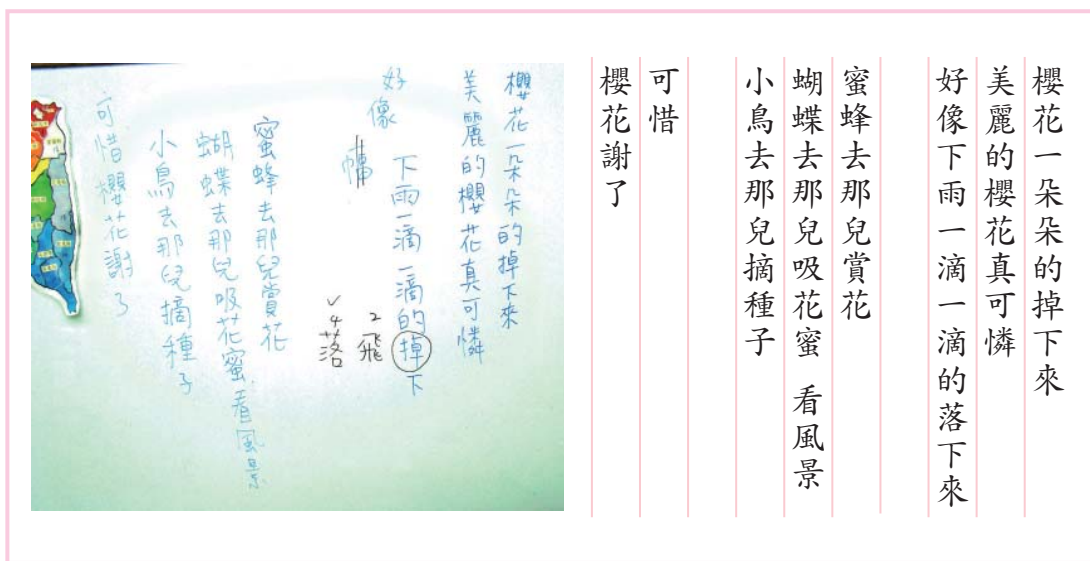 櫻花一朵朵的掉下來
美麗的櫻花真可憐
好像下雨一滴一滴的落下來
蜜蜂去那兒賞花
蝴蝶去那兒吸花蜜 看風景
小鳥去那兒摘種子
可惜
櫻花謝了
櫻花一朵朵的掉下來
美麗的櫻花真可憐
好像 下雨一滴一滴的掉下
2飛
✓4落
蜜蜂去那兒賞花
蝴蝶去那兒吸花蜜,看風景
小鳥去那兒摘種子
可惜櫻花謝了